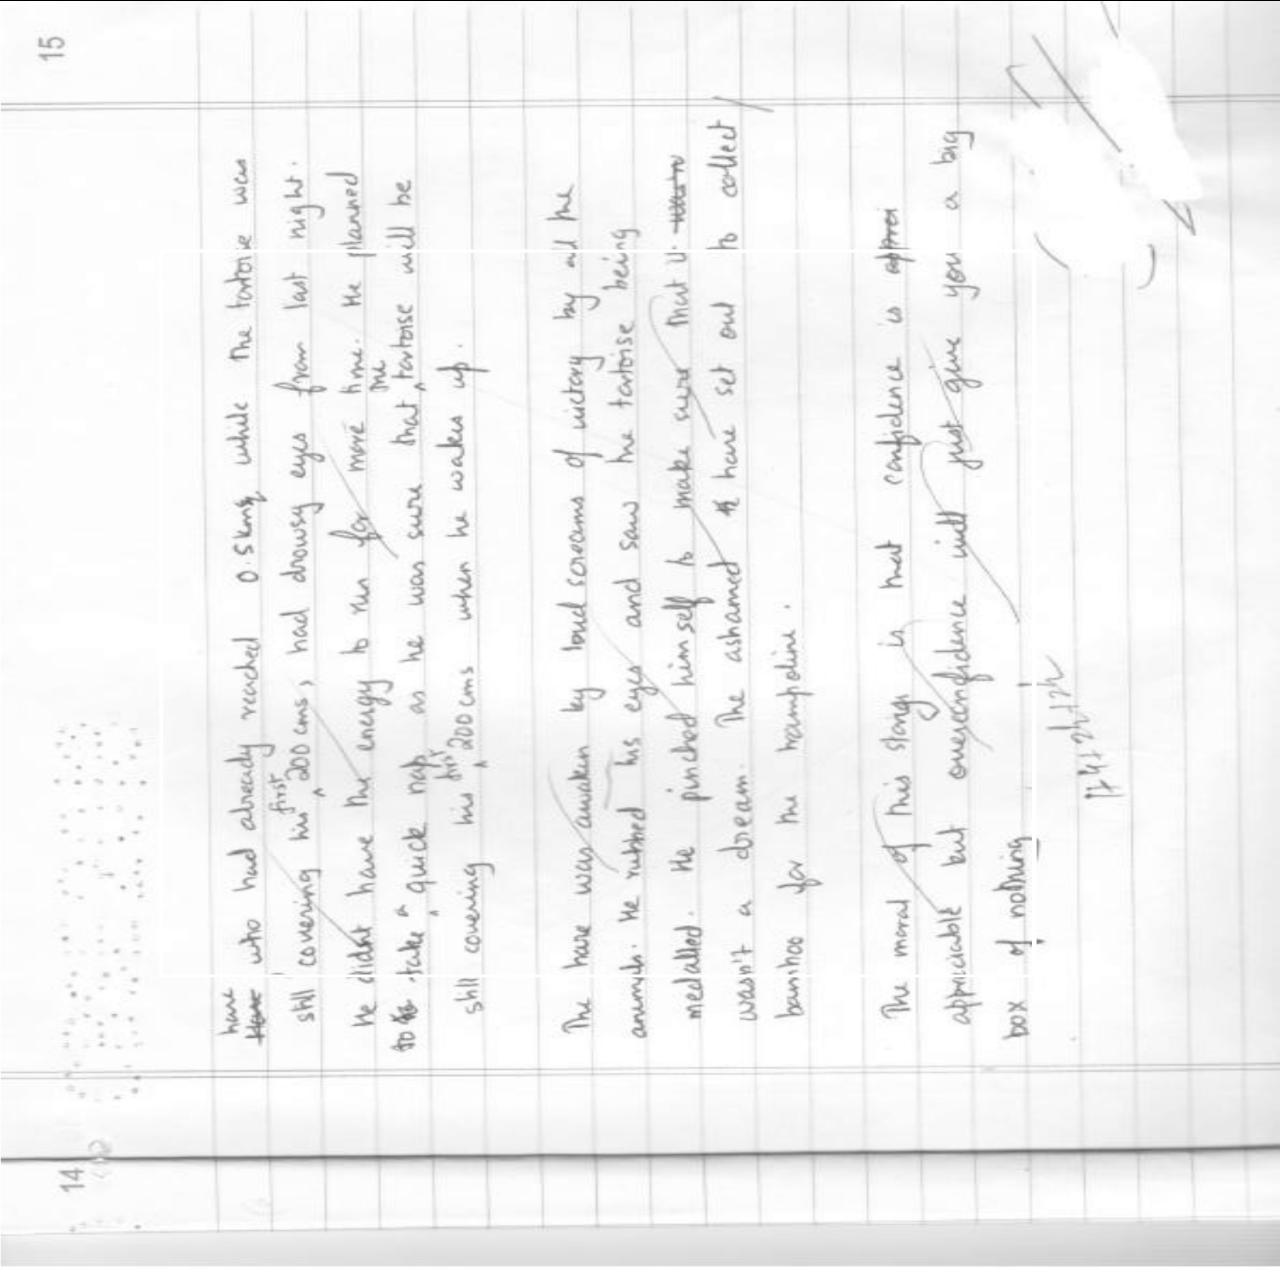 15
hare
who had already reached 0.5kms while the tortoise was
still covering his first 200 cms, had drowsy eyes from last night.
He didnt have the energy to run for more time. He planned
to take a quick nap as he was sure that the tortoise will be
still covering his first 200 cms when he wakes up.
The hare was awaken by loud screams of victory by all the
animals. He rubbed his eyes and saw the tortoise being
medalled. He pinched himself to make sure that it
wasn't a dream. The ashamed hare set out to collect
bamboo for the trampoline.
The moral of this story is that confidence is
appriciable but overconfidence will just give you a big
box of nothing
14